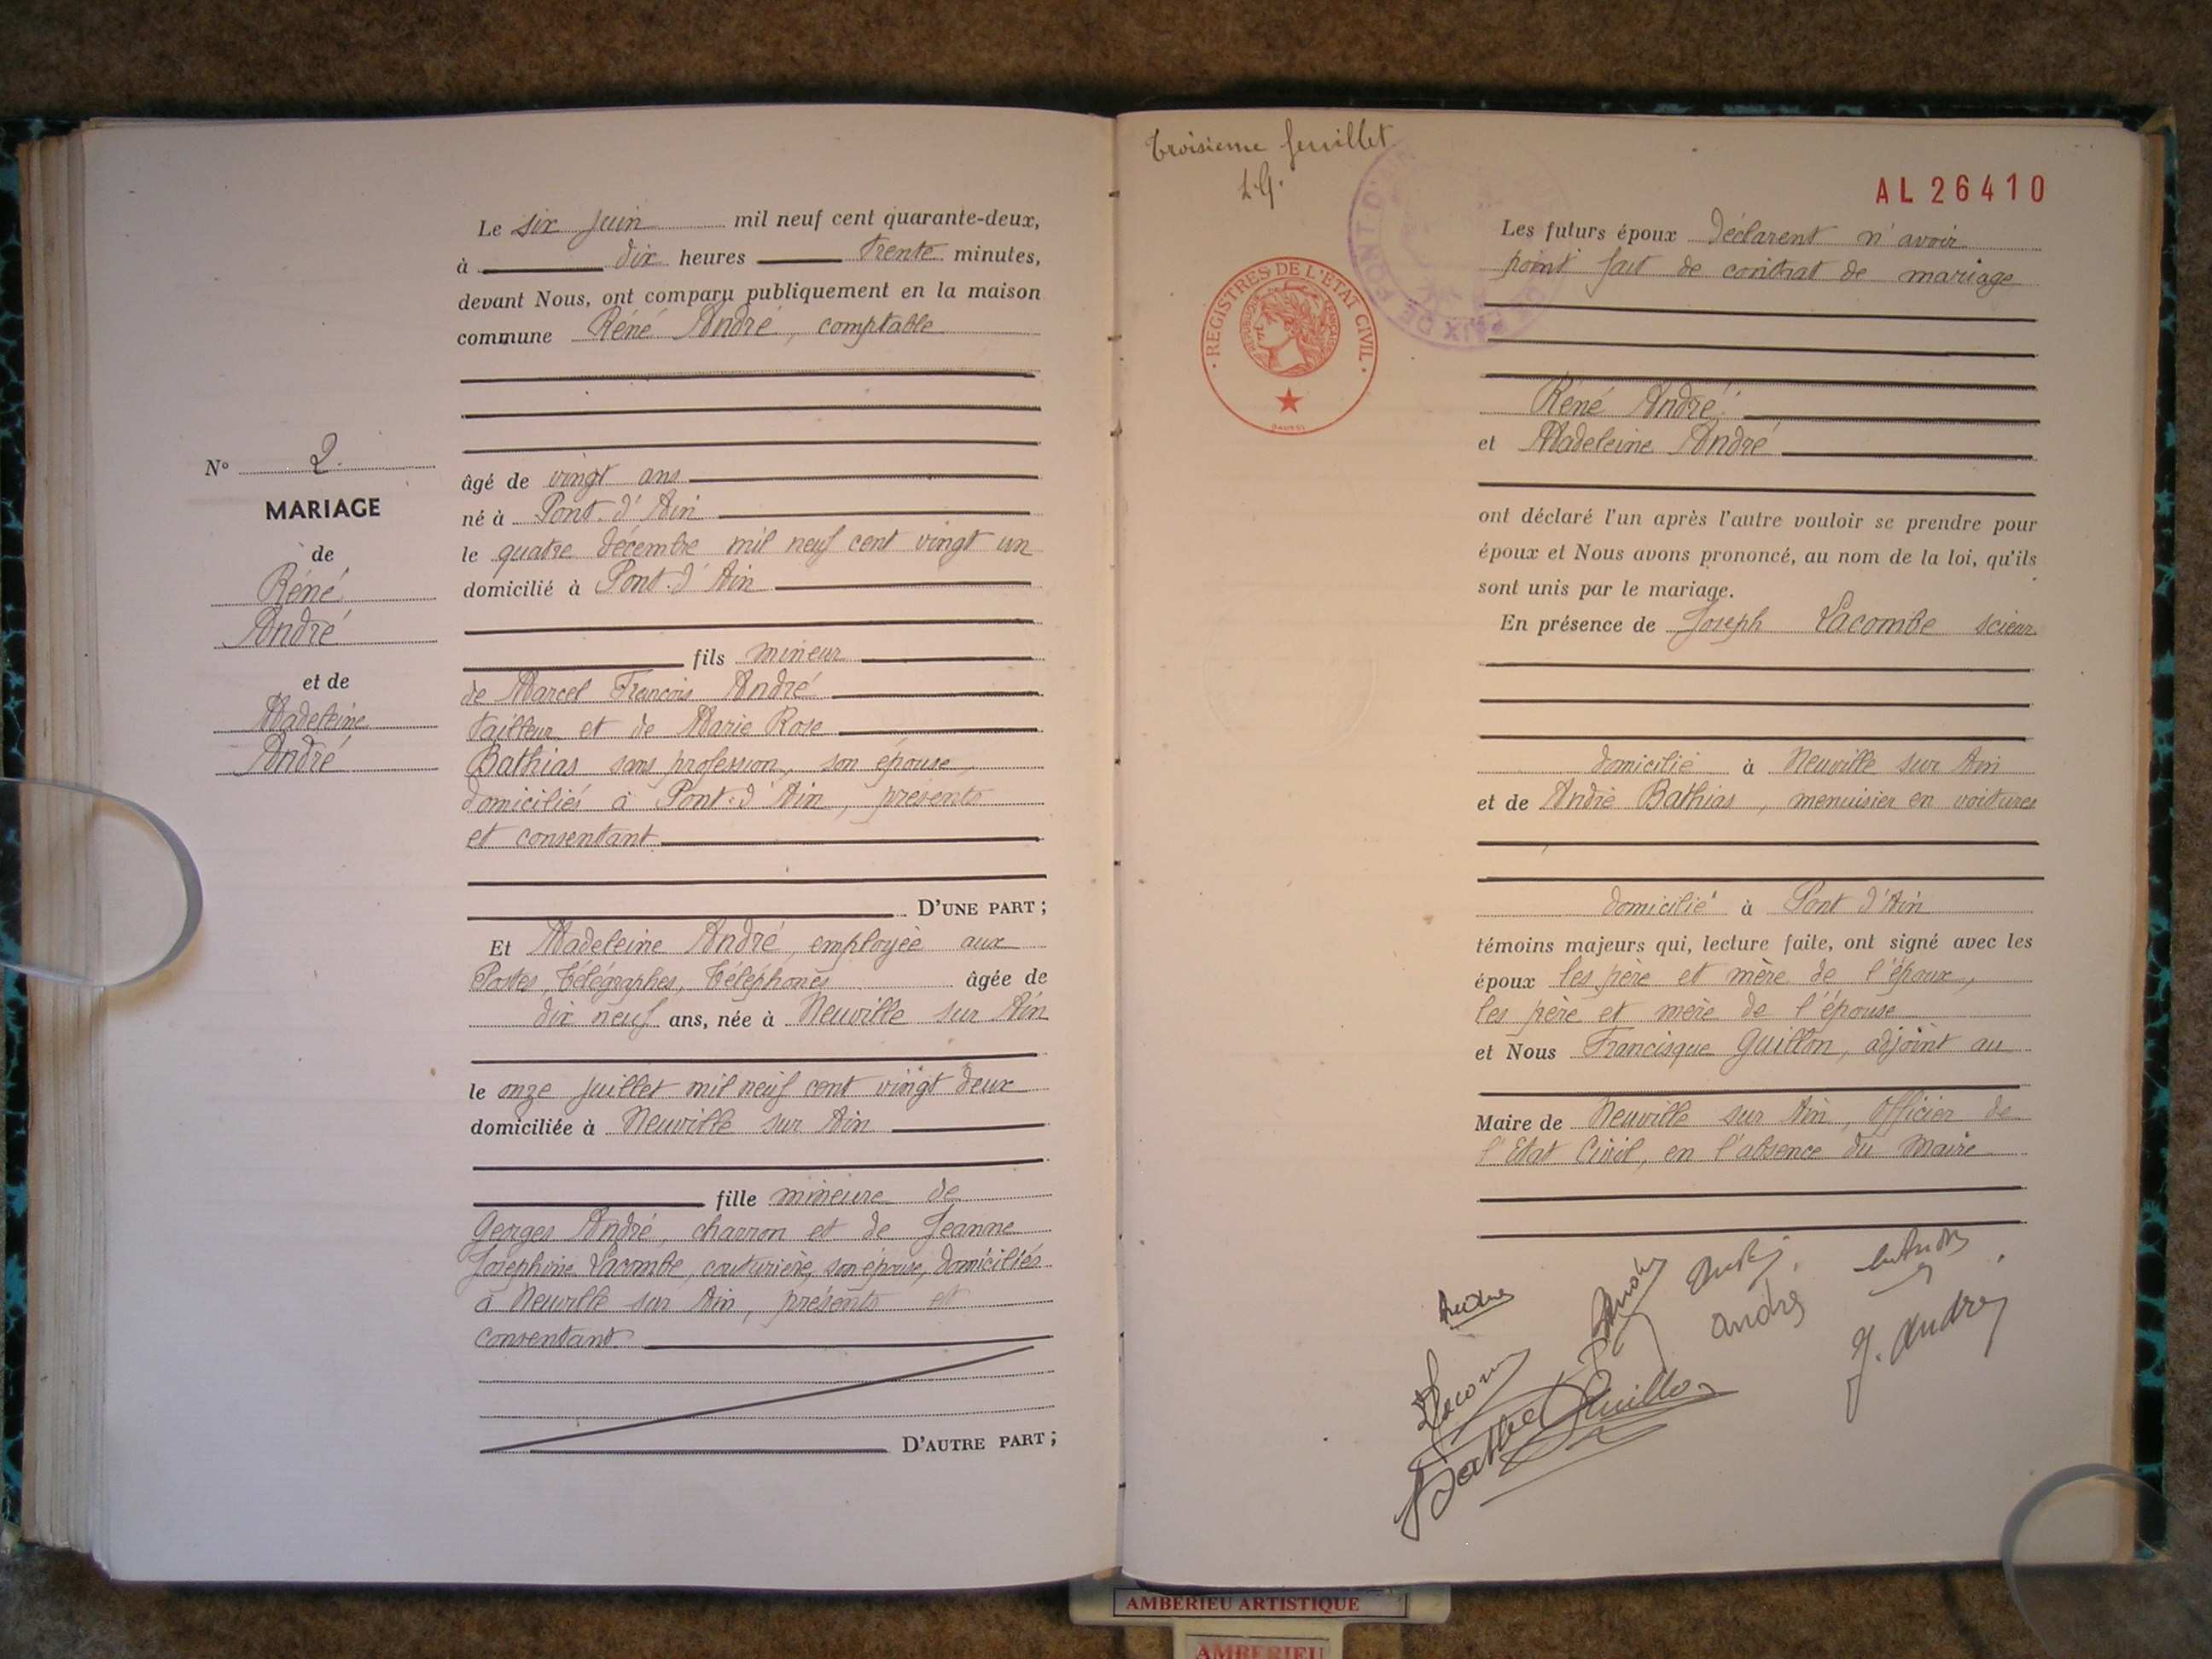 Le six juin mil neuf cent quarante-deux,
à dix heures trente minutes,
devant Nous, ont comparu publiquement en la maison
commune Réné André, comptable
N° 2.
MARIAGE
de
Réné
André
et de
Madeleine
André
âgé de vingt ans
né à Pont-d'Ain
le quatre décembre mil neuf cent vingt un
domicilié à Pont-d'Ain
fils mineur
de Marcel François André
tailleur et de Marie Rose
Bathias sans profession, son épouse,
domiciliés à Pont-d'Ain, présents
et consentant
D'UNE PART ;
Et Madeleine André, employée aux
Postes, Télégraphes, Téléphones âgée de
dix neuf ans, née à Neuville sur Ain
le onze juillet mil neuf cent vingt deux
domiciliée à Neuville sur Ain
fille mineure de
Georges André, charron et de Jeanne
Joséphine Lacombe, couturière, son épouse, domiciliés
à Neuville sur Ain, présents et
consentant
D'AUTRE PART ;
Troisième feuillet
AL 26410
· REGISTRES DE L'ETAT CIVIL ·
REPUBLIQUE FRANÇAISE
DE PAIX DE PONT-D'AIN
Les futurs époux déclarent n'avoir
point fait de contrat de mariage
Réné André
et Madeleine André
ont déclaré l'un après l'autre vouloir se prendre pour
époux et Nous avons prononcé, au nom de la loi, qu'ils
sont unis par le mariage.
En présence de Joseph Lacombe scieur
domicilié à Neuville sur Ain
et de André Bathias, menuisier en voitures
domicilié à Pont d'Ain
témoins majeurs qui, lecture faite, ont signé avec les
époux les père et mère de l'époux,
les père et mère de l'épouse
et Nous Francisque Guillon, adjoint au
Maire de Neuville sur Ain, Officier de
l'Etat Civil, en l'absence du Maire
André
André
J. André
Guillon
AMBERIEU ARTISTIQUE
AMBERIEU